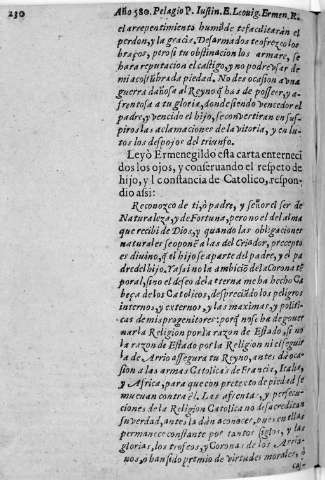 230 Año 580. Pelagio P. Iustin. E. Leouig. Ermen. R.
el arrepentimiento humilde te facilitarán el
perdon, y la gracia. Desarmados te ofrezco los
braços, pero si tu obstinacion los armare, se
hara reputacion el castigo, y no podrè vsar de
mi acostũbrada piedad. No des ocasion a vna
guerra dañosa al Reyno q̃ has de posseer, y a-
frentosa a tu gloria, donde siendo vencedor el
padre, y vencido el hijo, se conuertiran en sus-
piros las aclamaciones de la vitoria, y en lu-
tos los despojos del triunfo.
Leyò Ermenegildo esta carta enterneci
dos los ojos, y conseruando el respeto de
hijo, y la constancia de Catolico, respon-
dio assi:
Reconozco de ti, ò padre, y señor el ser de
Naturaleza, y de Fortuna, pero no el del alma
que recibi de Dios, y quando las obligaciones
naturales se oponẽ a las del Criador, precepto
es diuino, q̃ el hijo se aparte del padre, y el pa
dre del hijo. Y assi no la ambiciõ de la Corona tẽ
poral, sino el deseo de la eterna me ha hecho Ca
beça de los Catolicos, despreciãdo los peligros
internos, y externos, y las maximas, y politi-
cas de mis progenitores: porq̃ no se ha de gouer
nar la Religion por la razon de Estado, si no
la razon de Estado por la Religion ni el seguir
la de Arrio assegura tu Reyno, antes dà oca-
sion a las armas Catolicas de Francia, Italia,
y Africa, para que con pretexto de piedad se
mueuan contra èl. Las afrentas, y persecu-
ciones de la Religion Catolica no desacreditan
su verdad, antes la dàn a conocer, pues en ellas
permanece constante por tantos siglos, y las
glorias, los trofeos, y Coronas de los Arria-
nos, o han sido premio de virtudes morales, ò
ca-